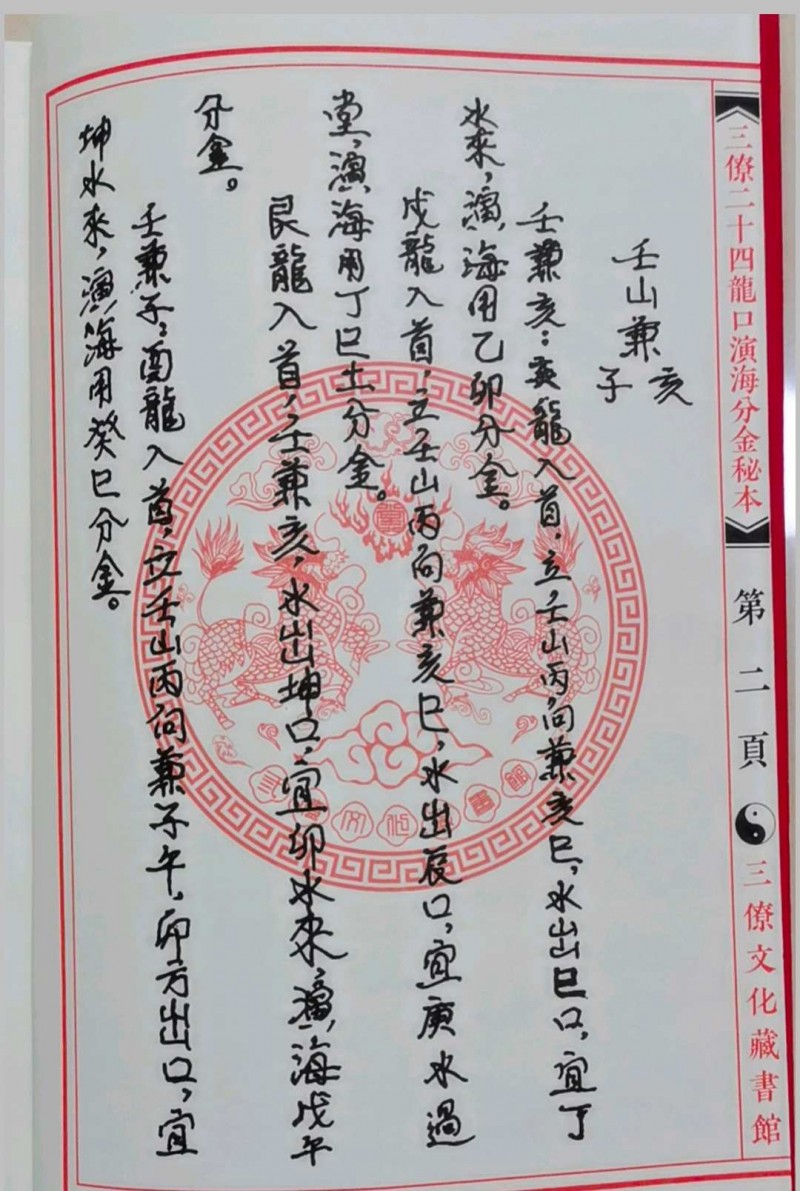 三僚二十四龍口演海分金秘本
第二頁
三僚文化藏書館
壬山兼亥
子
壬兼亥：亥龍入首，立壬山丙向兼亥巳，水出巳口，宜丁
水來，演海用乙卯分金。
戌龍入首，立壬山丙向兼亥巳，水出辰口，宜庚水過
堂，演海用丁巳土分金。
艮龍入首，壬兼亥，水出坤口，宜卯水來，演海戊午
分金。
壬兼子：酉龍入首，立壬山丙向兼子午，卯方出口，宜
坤水來，演海用癸巳分金。